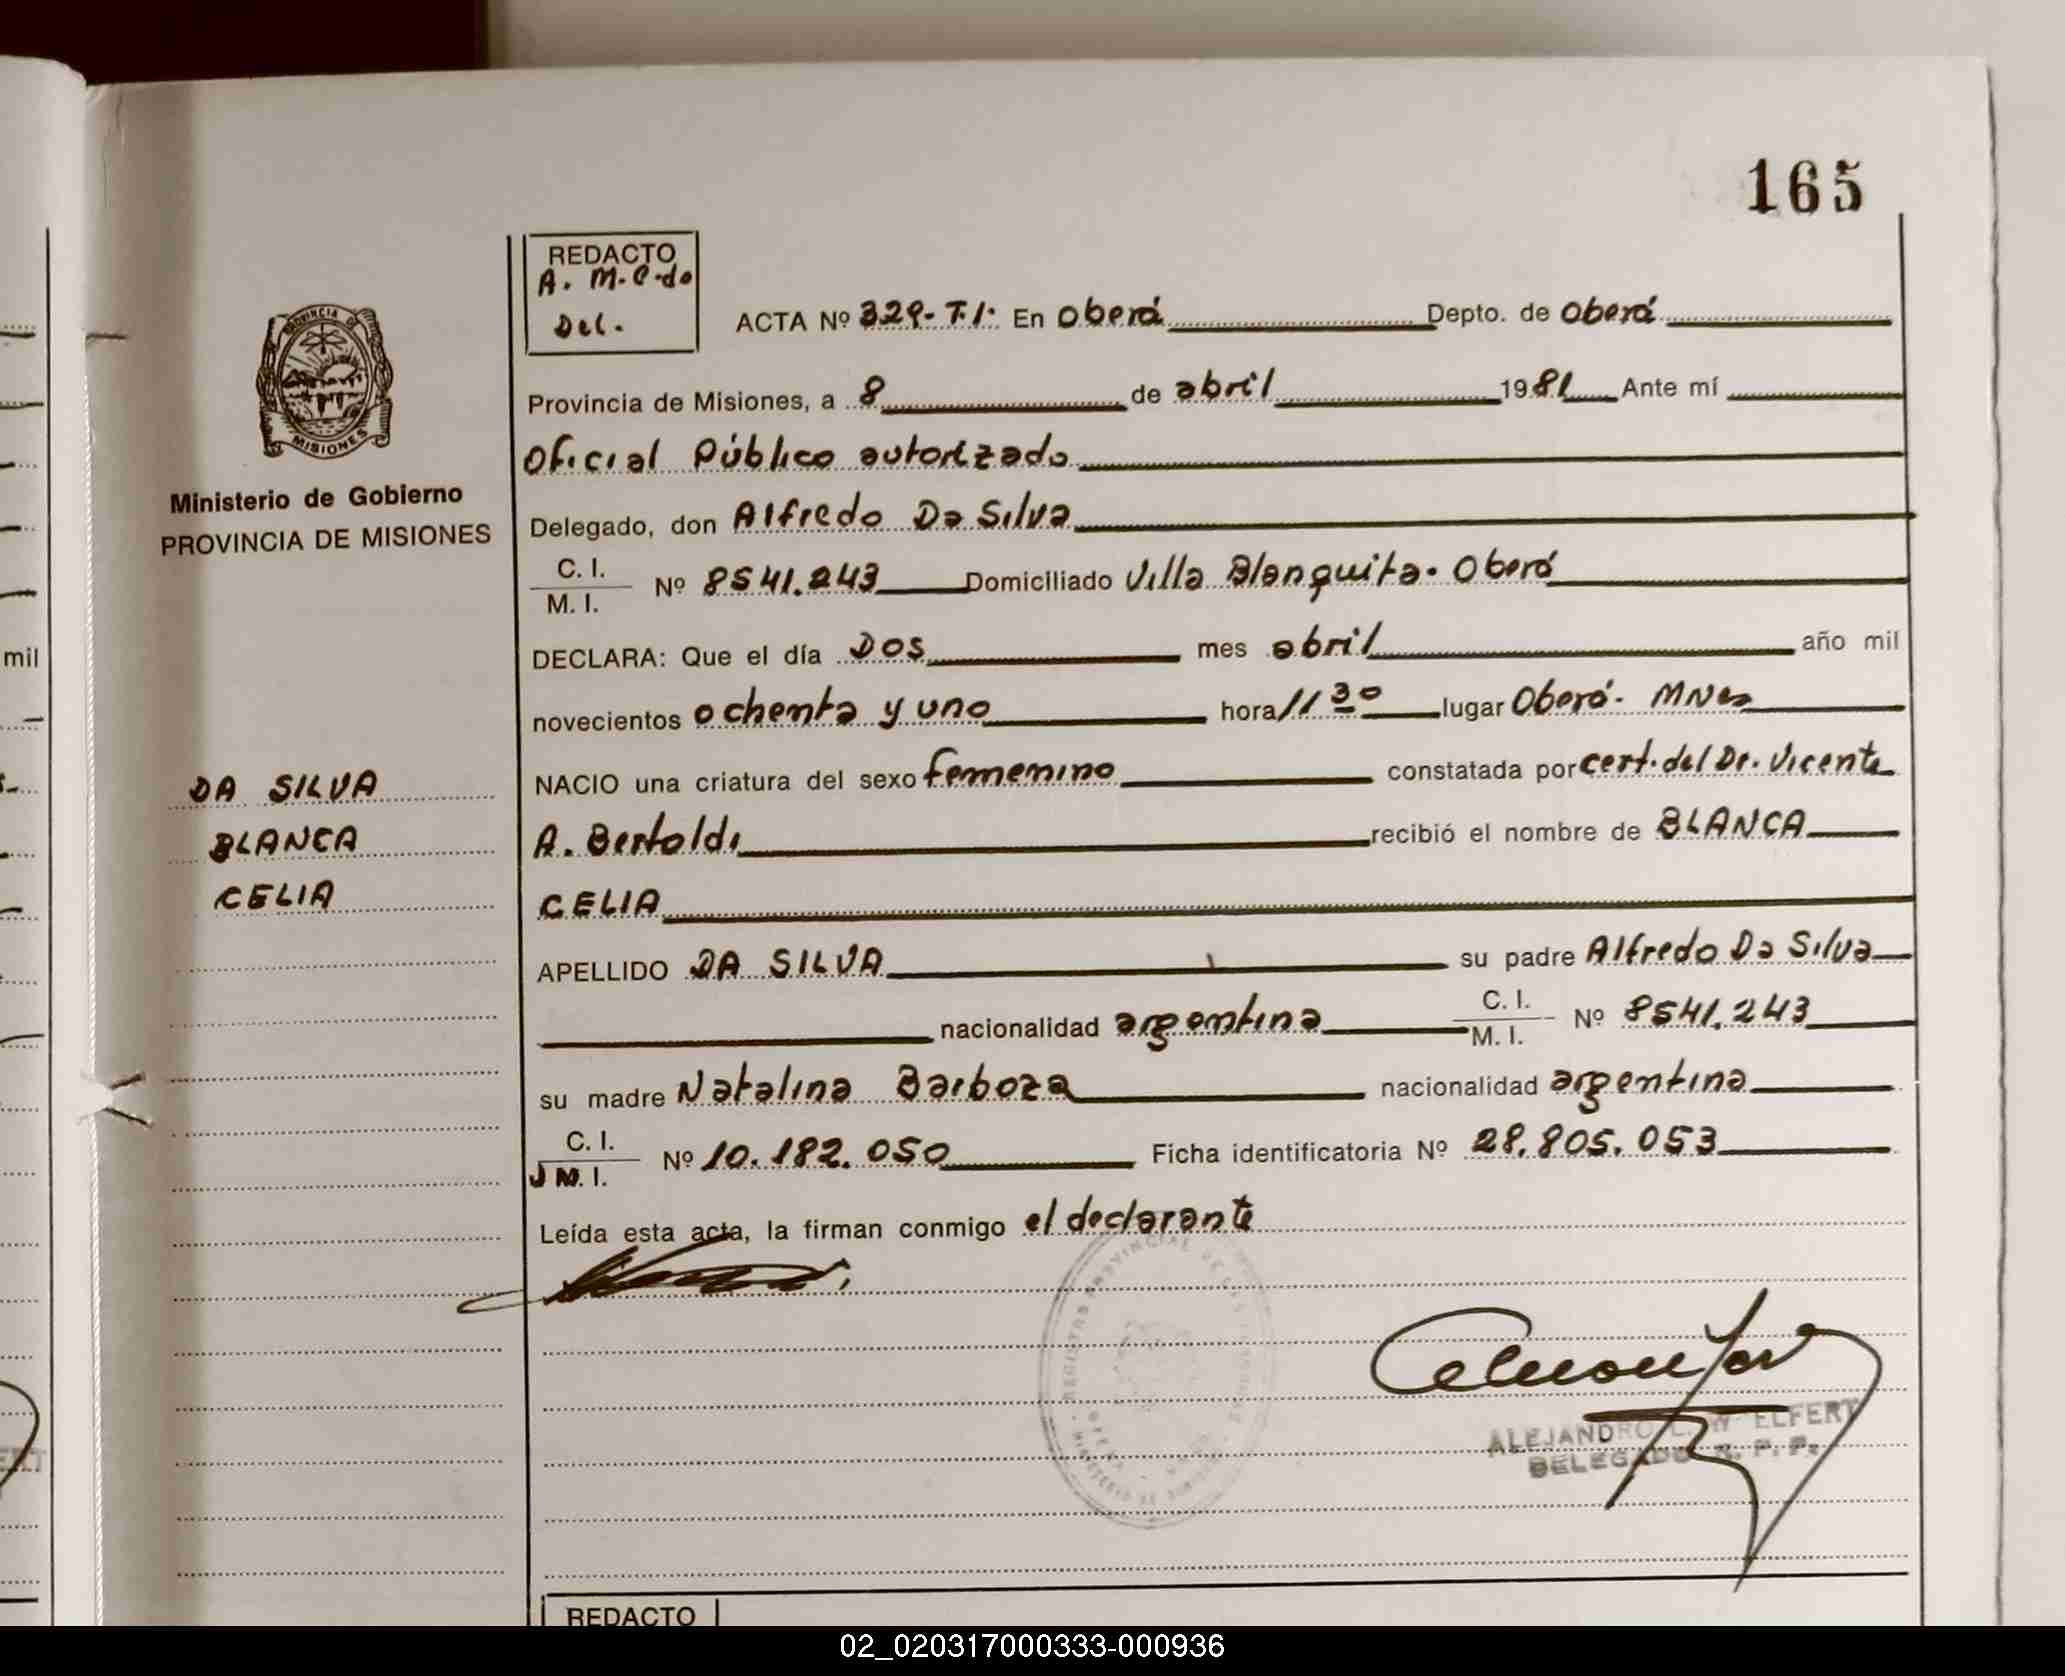 165
REDACTO
A. M. C. do
Del.
ACTA Nº 329-T.1. En Oberá Depto. de Oberá
Provincia de Misiones, a 8 de abril 1981 Ante mí
Oficial Público autorizado
Delegado, don Alfredo Da Silva
C. I.
M. I. Nº 8541.243 Domiciliado Villa Blanquita. Oberá
DECLARA: Que el día Dos mes abril año mil
novecientos ochenta y uno hora 11 30 lugar Oberá. MNes
NACIO una criatura del sexo femenino constatada por cert. del Dr. Vicente
A. Bertoldi recibió el nombre de BLANCA
CELIA
APELLIDO DA SILVA su padre Alfredo Da Silva
nacionalidad argentina C. I.
M. I. Nº 8541.243
su madre Natalina Barboza nacionalidad argentina
C. I.
M. I. Nº 10.182.050 Ficha identificatoria Nº 28.805.053
Leída esta acta, la firman conmigo el declarante
ALEJANDRO ELFERT
DELEGADO R. P. P.
REDACTO
PROVINCIA DE
MISIONES
Ministerio de Gobierno
PROVINCIA DE MISIONES
DA SILVA
BLANCA
CELIA
mil
02_020317000333-000936